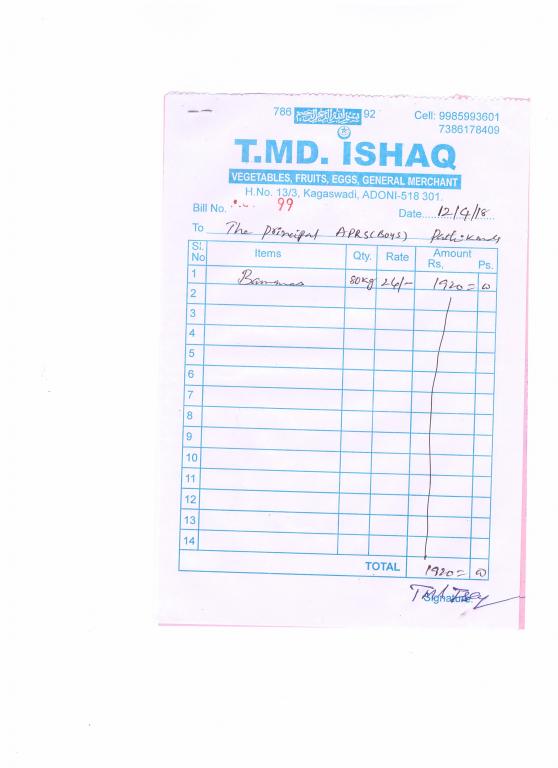 786 92
Cell: 9985993601
7386178409
T.MD. ISHAQ
VEGETABLES, FRUITS, EGGS, GENERAL MERCHANT
H.No. 13/3, Kagaswadi, ADONI-518 301.
Bill No. 99
Date 12/4/18
To The principal APRS(Boys)
Sl. No Items Qty. Rate Amount Rs, Ps.
1 Bananas 80kg 24/- 1920=00
2
3
4
5
6
7
8
9
10
11
12
13
14
TOTAL 1920=00
Signature